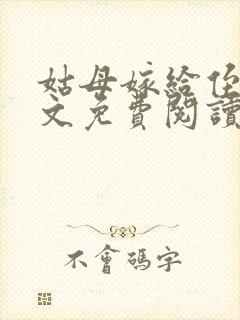 姑母嫁給侄
文免費閱讀
不會碼字